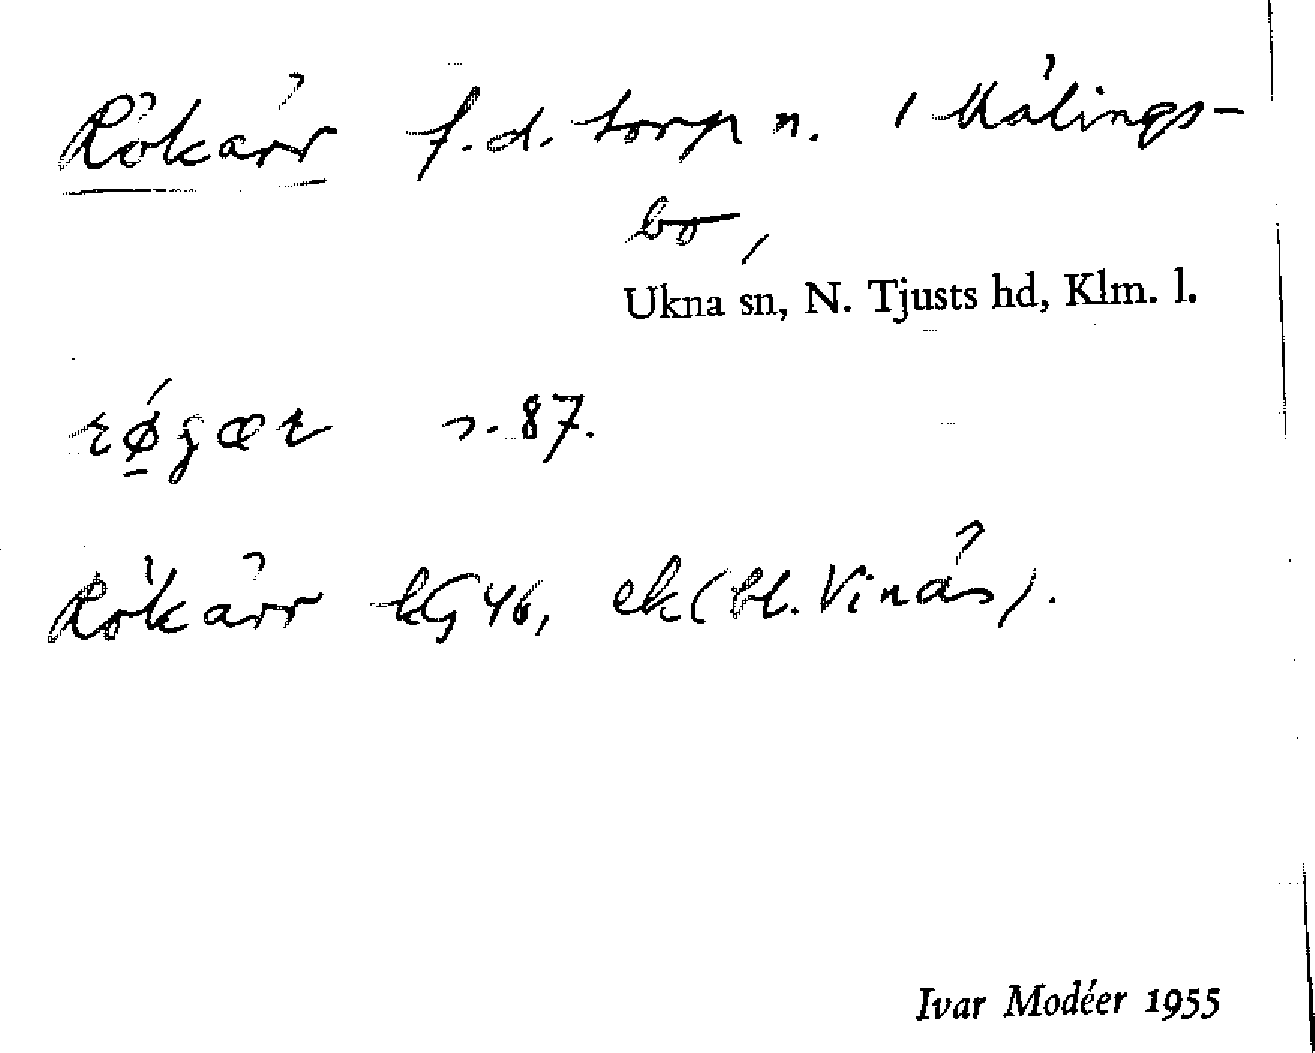 Rökärr f.d. torp n. i Målings-
bo,
Ukna sn, N. Tjusts hd, Klm. l.
s. 87.
Rökärr kG 46, ek (bl. Vinäs).
Ivar Modéer 1955